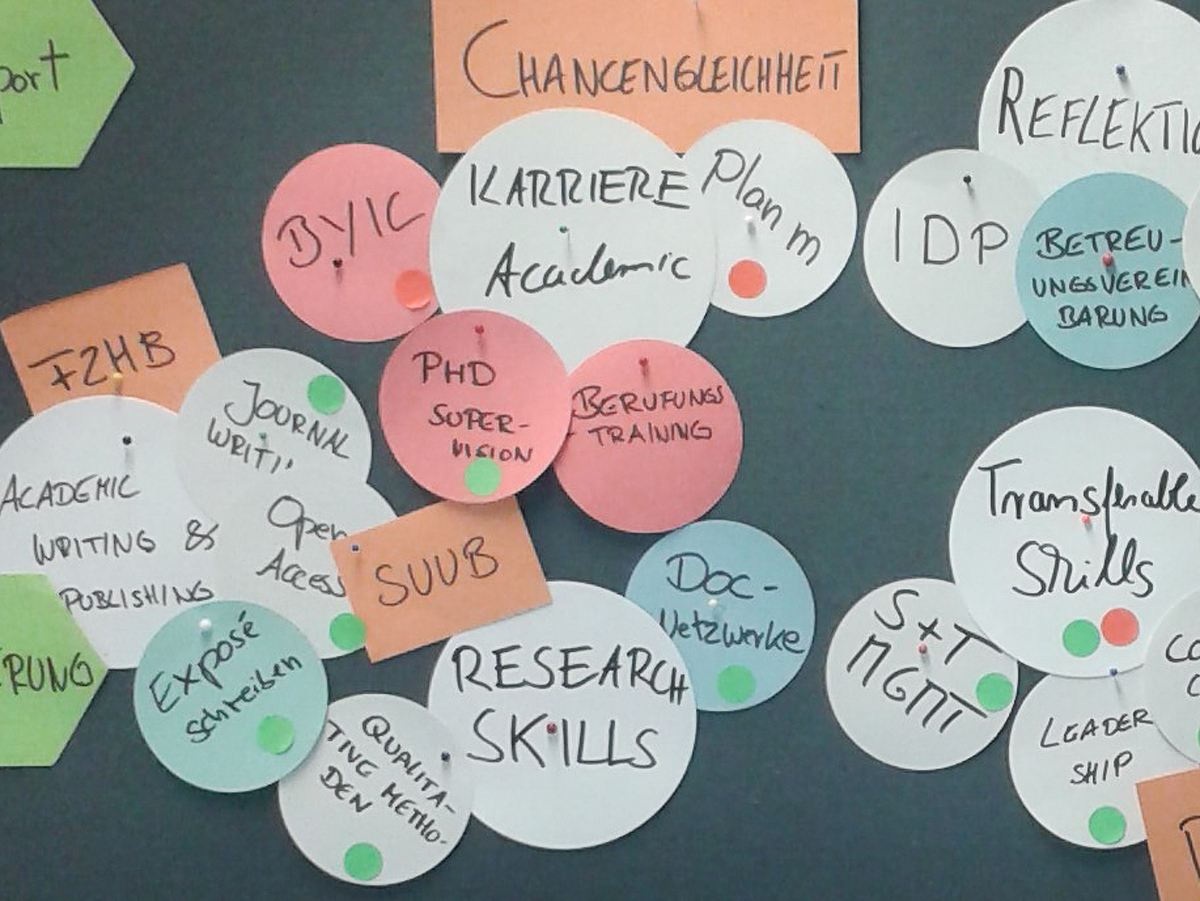 port
CHANCENGLEICHHEIT
REFLEKTIO
KARRIERE
Academic
Plan m
BYIC
IDP
BETREU-
UNGSVEREIN
BARUNG
FZHB
JOURNAL
WRITI'
PHD
SUPER-
VISION
BERUFUNGS
-TRAINING
ACADEMIC
WRITING &
PUBLISHING
Open
Access
SUUB
Doc-
Netzwerke
Transferable
Skills
S+T
MGMT
ERUNG
Exposé
schreiben
RESEARCH
SKILLS
QUALITA-
TIVE METHO-
DEN
LEADER
SHIP